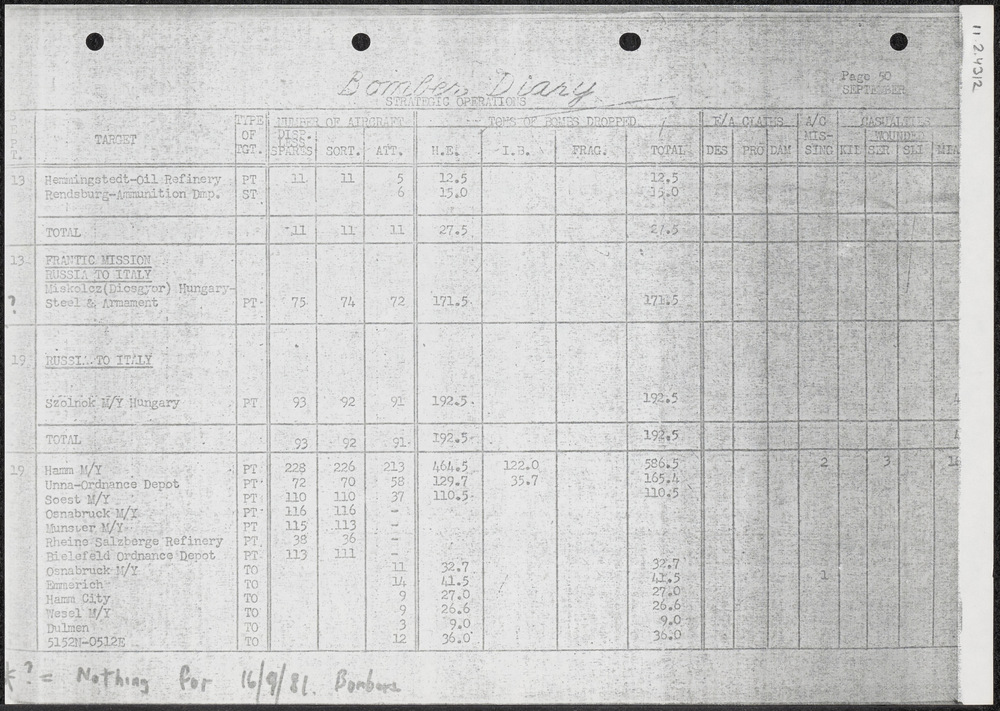 11 2.4312
Bomber Diary
Page 50
STRATEGIC OPERATIONS
SEPTEMBER
TARGET TYPE OF TGT. NUMBER OF AIRCRAFT TONS OF BOMBS DROPPED E/A CLAIMS A/C MIS- SING CASUALTIES
DISP. LESS SPARES SORT. ATT. H.E. I.B. FRAG. TOTAL DES PRO DAM KIL WOUNDED SER SLI MIA
13 Hemmingstedt-Oil Refinery PT 11 11 5 12.5 12.5
Rendsburg-Ammunition Dmp. ST 6 15.0 15.0
TOTAL 11 11 11 27.5 27.5
13 FRANTIC MISSION
RUSSIA TO ITALY
Miskolcz(Diosgyor) Hungary-
? Steel & Armament PT 75 74 72 171.5 171.5
19 RUSSIA TO ITALY
Szolnok M/Y Hungary PT 93 92 91 192.5 192.5
TOTAL 93 92 91 192.5 192.5
19 Hamm M/Y PT 228 226 213 464.5 122.0 586.5 2 3
Unna-Ordnance Depot PT 72 70 58 129.7 35.7 165.4
Soest M/Y PT 110 110 37 110.5 110.5
Osnabruck M/Y PT 116 116 -
Munster M/Y PT 115 113 -
Rheine Salzberge Refinery PT 38 36 -
Bielefeld Ordnance Depot PT 113 111 -
Osnabruck M/Y TO 11 32.7 32.7
Emmerich TO 14 41.5 41.5 1
Hamm City TO 9 27.0 27.0
Wesel M/Y TO 9 26.6 26.6
Dulmen TO 3 9.0 9.0
5152N-0512E TO 12 36.0 36.0
* ? = Nothing for 16/9/81. Bombers